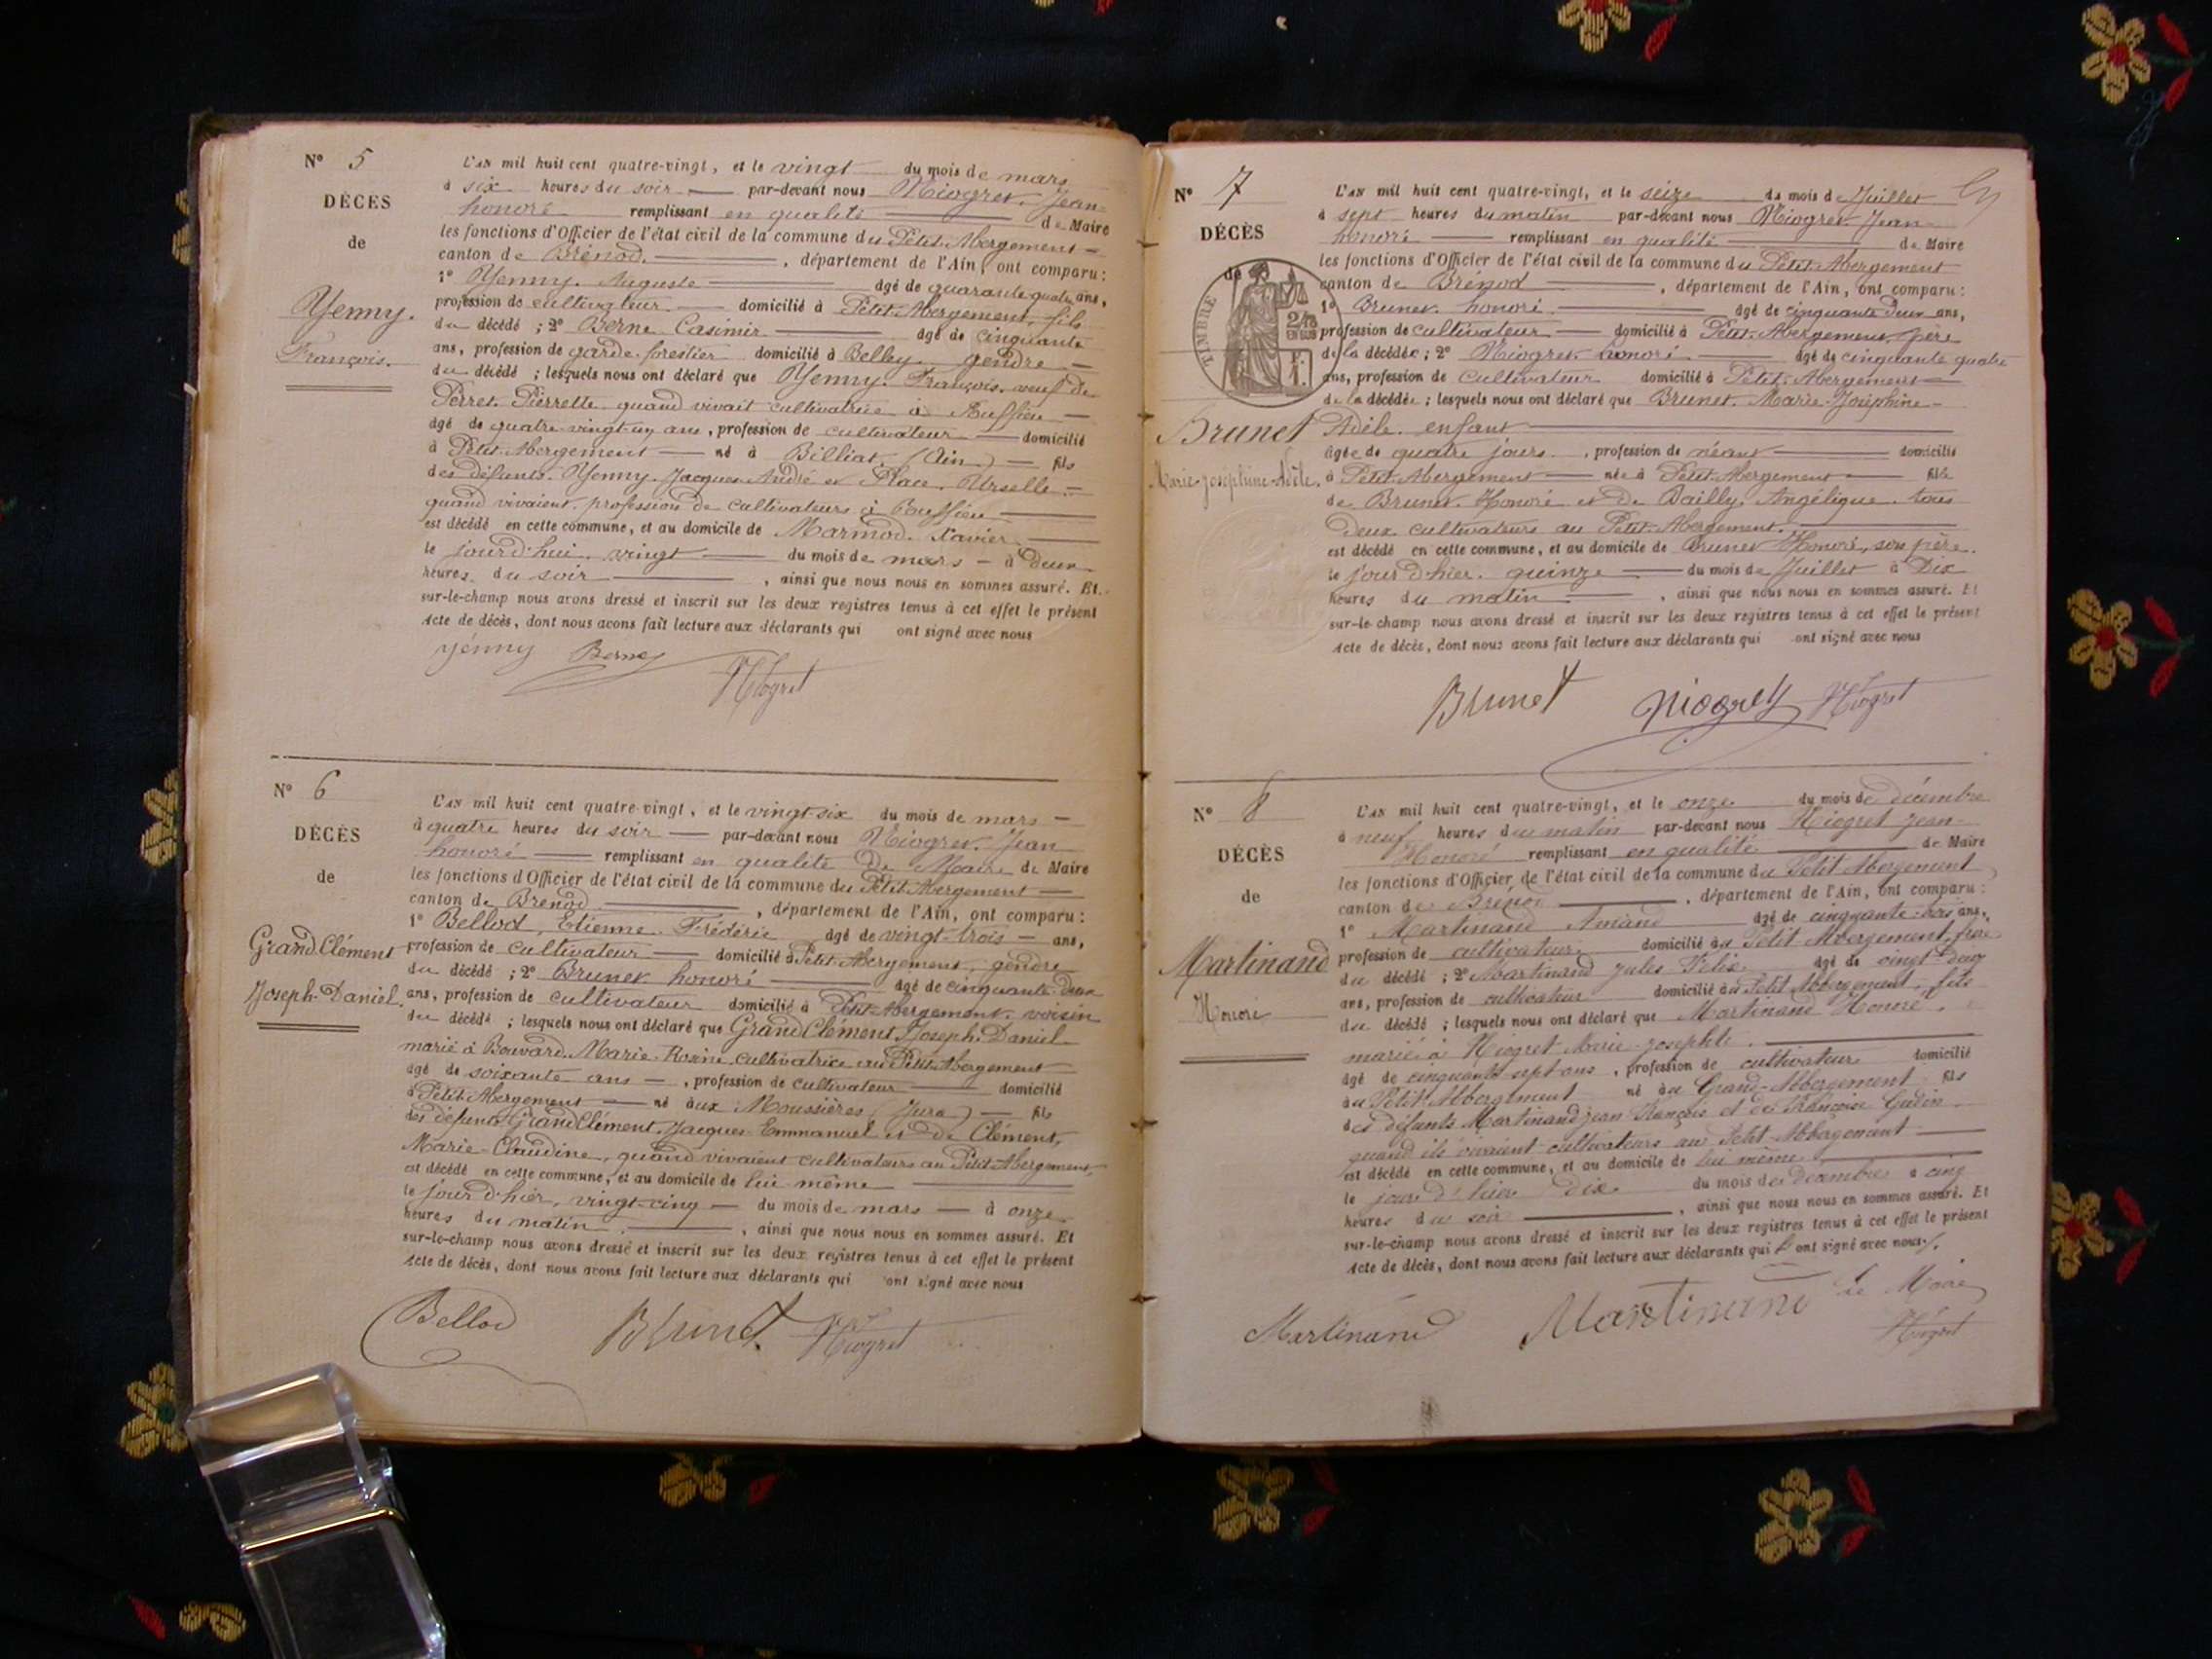 N° 5
DÉCÈS
de
Yenny.
François.
L'an mil huit cent quatre-vingt, et le vingt du mois de mars
à six heures du soir par-devant nous Niogret. Jean-
honoré remplissant en qualité de Maire
les fonctions d'Officier de l'état civil de la commune du Petit-Abergement
canton de Brénod. , département de l'Ain, ont comparu :
1° Yenny. Auguste âgé de quarante quatre ans,
profession de cultivateur domicilié à Petit-Abergement, fils
du décédé ; 2° Berne Casimir âgé de cinquante
ans, profession de garde-forestier domicilié à Belley. gendre
du décédé ; lesquels nous ont déclaré que Yenny. François. veuf de
Perret. Pierrette quand vivait cultivatrice à Ruffieu
âgé de quatre-vingt-un ans, profession de cultivateur domicilié
à Petit-Abergement né à Billiat, (Ain) fils
des défunts. Yenny. Jacques André et Place. Urselle
quand vivaient profession de cultivateurs à Ruffieu
est décédé en cette commune, et au domicile de Marmod. Xavier
le jourd'hui. vingt du mois de mars à deux
heures du soir , ainsi que nous nous en sommes assuré. Et
sur-le-champ nous avons dressé et inscrit sur les deux registres tenus à cet effet le présent
acte de décès, dont nous avons fait lecture aux déclarants qui ont signé avec nous
yenny Berne
Niogret
N° 6
DÉCÈS
de
GrandClément
Joseph-Daniel.
L'an mil huit cent quatre-vingt, et le vingt-six du mois de mars
à quatre heures du soir par-devant nous Niogret. Jean
honoré remplissant en qualité de Maire de Maire
les fonctions d'Officier de l'état civil de la commune du Petit-Abergement
canton de Brénod , département de l'Ain, ont comparu :
1° Bellod, Etienne. Frédéric âgé de vingt-trois ans,
profession de cultivateur domicilié à Petit-Abergement, gendre
du décédé ; 2° Brunet honoré âgé de cinquante deux
ans, profession de cultivateur domicilié à Petit-Abergement. voisin
du décédé ; lesquels nous ont déclaré que GrandClément, Joseph. Daniel
marié à Bouvard. Marie-Rosine cultivatrice au Petit-Abergement
âgé de soixante ans , profession de cultivateur domicilié
à Petit-Abergement né aux Moussières (Jura) fils
des défunts GrandClément. Jacques Emmanuel et de Clément,
Marie-Claudine, quand vivaient cultivateurs au Petit-Abergement,
est décédé en cette commune, et au domicile de lui-même
le jour d'hier, vingt-cinq du mois de mars à onze
heures du matin , ainsi que nous nous en sommes assuré. Et
sur-le-champ nous avons dressé et inscrit sur les deux registres tenus à cet effet le présent
acte de décès, dont nous avons fait lecture aux déclarants qui ont signé avec nous
Bellod Brunet Niogret
N° 7
DÉCÈS
de
TIMBRE
2/10 EN SUS
Brunet
Marie-Joséphine-Adèle.
L'an mil huit cent quatre-vingt, et le seize du mois de Juillet
à sept heures du matin par-devant nous Niogret. Jean-
honoré remplissant en qualité de Maire
les fonctions d'Officier de l'état civil de la commune du Petit-Abergement
canton de Brénod , département de l'Ain, ont comparu :
1° Brunet. honoré âgé de cinquante deux ans,
profession de cultivateur domicilié à Petit-Abergement, père
de la décédée ; 2° Niogret. honoré âgé de cinquante quatre
ans, profession de cultivateur domicilié à Petit-Abergement
de la décédée ; lesquels nous ont déclaré que Brunet. Marie-Joséphine-
Adèle. enfant
âgée de quatre jours. , profession de néant domicilié
à Petit-Abergement née à Petit-Abergement fille
de Brunet. Honoré et de Bailly. Angélique. tous
deux cultivateurs au Petit-Abergement.
est décédé en cette commune, et au domicile de Brunet Honoré, son père.
le jour d'hier. quinze du mois de Juillet à Dix
heures du matin , ainsi que nous nous en sommes assuré. Et
sur-le-champ nous avons dressé et inscrit sur les deux registres tenus à cet effet le présent
acte de décès, dont nous avons fait lecture aux déclarants qui ont signé avec nous
Brunet Niogret Niogret
N° 8
DÉCÈS
de
Martinand
Honoré
L'an mil huit cent quatre-vingt, et le onze du mois de décembre
à neuf heures du matin par-devant nous Niogret Jean-
Honoré remplissant en qualité de Maire
les fonctions d'Officier de l'état civil de la commune du Petit Abergement
canton de Brénod , département de l'Ain, ont comparu :
1° Martinand Amand âgé de cinquante-trois ans,
profession de cultivateur domicilié au Petit Abergement, frère
du décédé ; 2° Martinand Jules Félix âgé de vingt-deux
ans, profession de cultivateur domicilié au Petit Abbergement, fils
du décédé ; lesquels nous ont déclaré que Martinand Honoré,
marié à Niogret Marie-Josephte.
âgé de cinquante sept ans , profession de cultivateur domicilié
au Petit-Abbergement né au Grand-Abbergement fils
des défunts Martinand jean François et de Françoise Godin
quand ils vivaient cultivateurs au Petit-Abbergement
est décédé en cette commune, et au domicile de lui même
le jour d'hier dix du mois de décembre à cinq
heures du soir , ainsi que nous nous en sommes assuré. Et
sur-le-champ nous avons dressé et inscrit sur les deux registres tenus à cet effet le présent
acte de décès, dont nous avons fait lecture aux déclarants qui ont signé avec nous.
Martinand Martinand Le Maire
Niogret